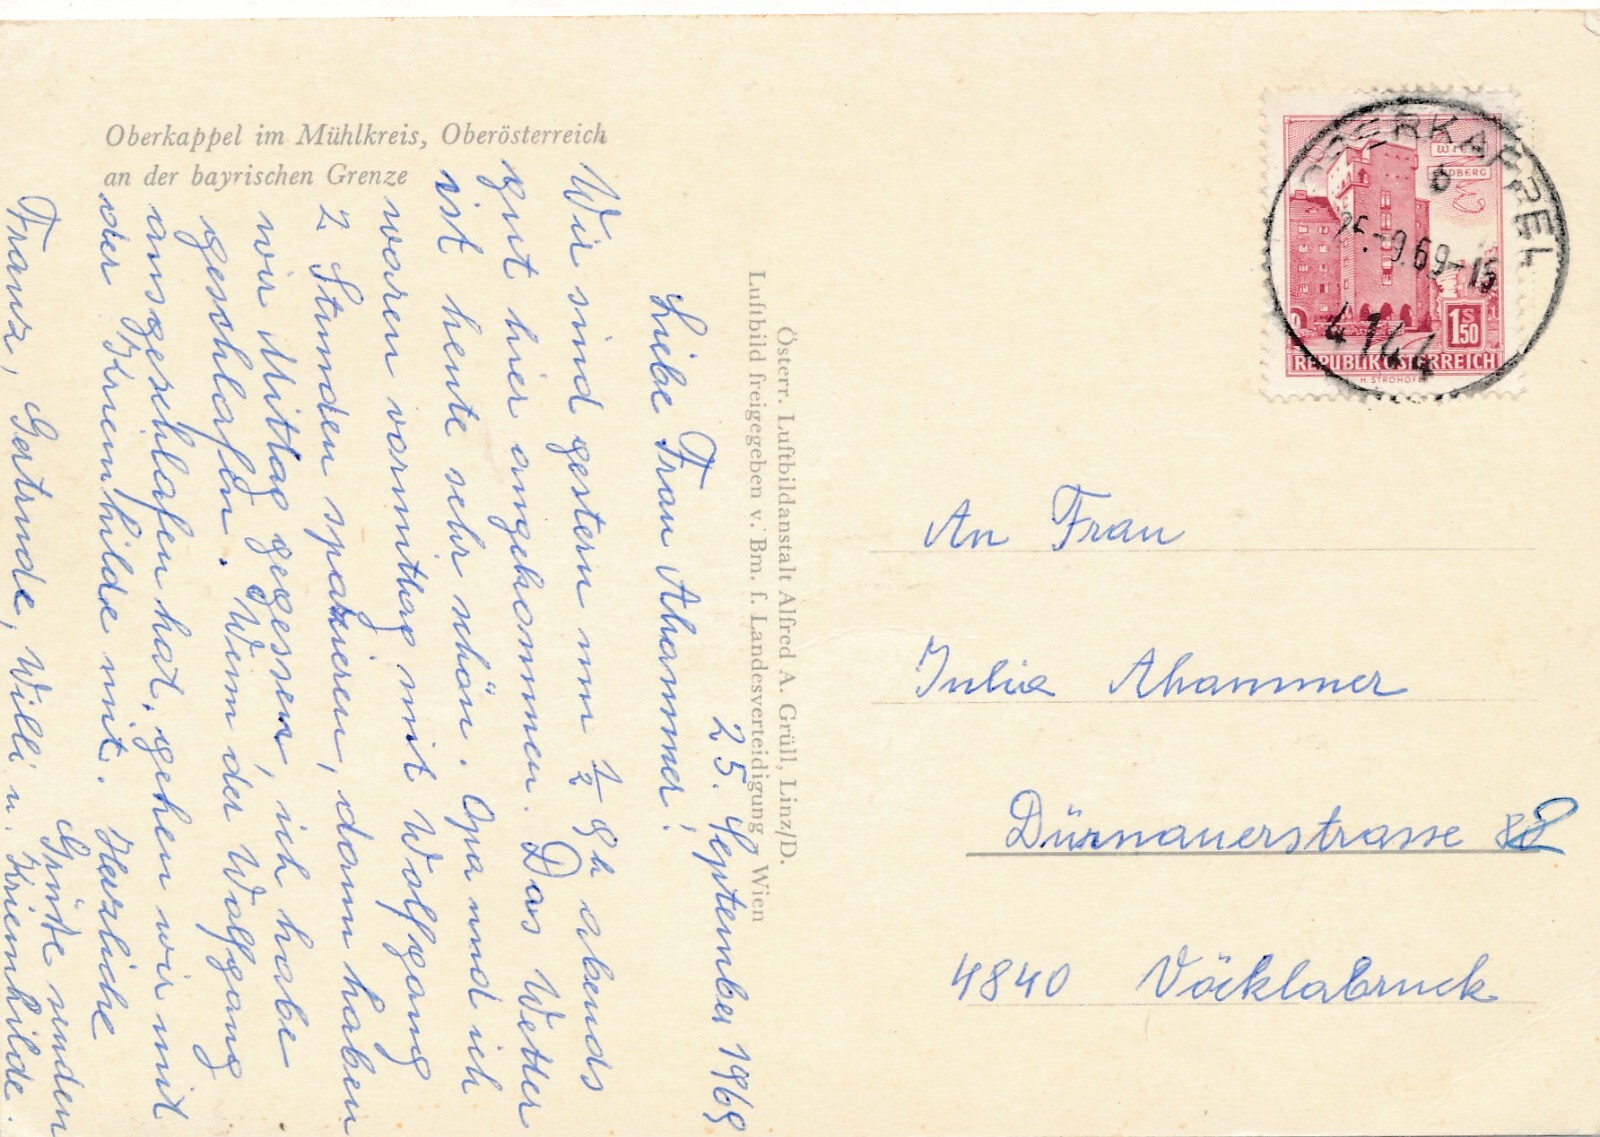 Oberkappel im Mühlkreis, Oberösterreich
an der bayrischen Grenze
25. September 1969
Liebe Frau Ahammer!
Wir sind gestern um ½ 9h abends
gut hier angekommen. Das Wetter
ist heute sehr schön. Opa und ich
waren vormittag mit Wolfgang
2 Stunden spazieren, dann haben
wir Mittag gegessen, ich habe
geschlafen. Wenn der Wolfgang
ausgeschlafen hat, gehen wir mit
der Kriemhilde mit. Herzliche
Grüße senden
Franz, Gertrude, Willi u. Kriemhilde.
Österr. Luftbildanstalt Alfred A. Grüll, Linz/D.
Luftbild freigegeben v. Bm. f. Landesverteidigung - Wien
WIEN
ERDBERG
1 S 50
REPUBLIK ÖSTERREICH
H. STROHOFER
OBERKAPPEL
b
25.-9.69-15
4144
An Frau
Julia Ahammer
Dürnauerstrasse
4840 Vöcklabruck